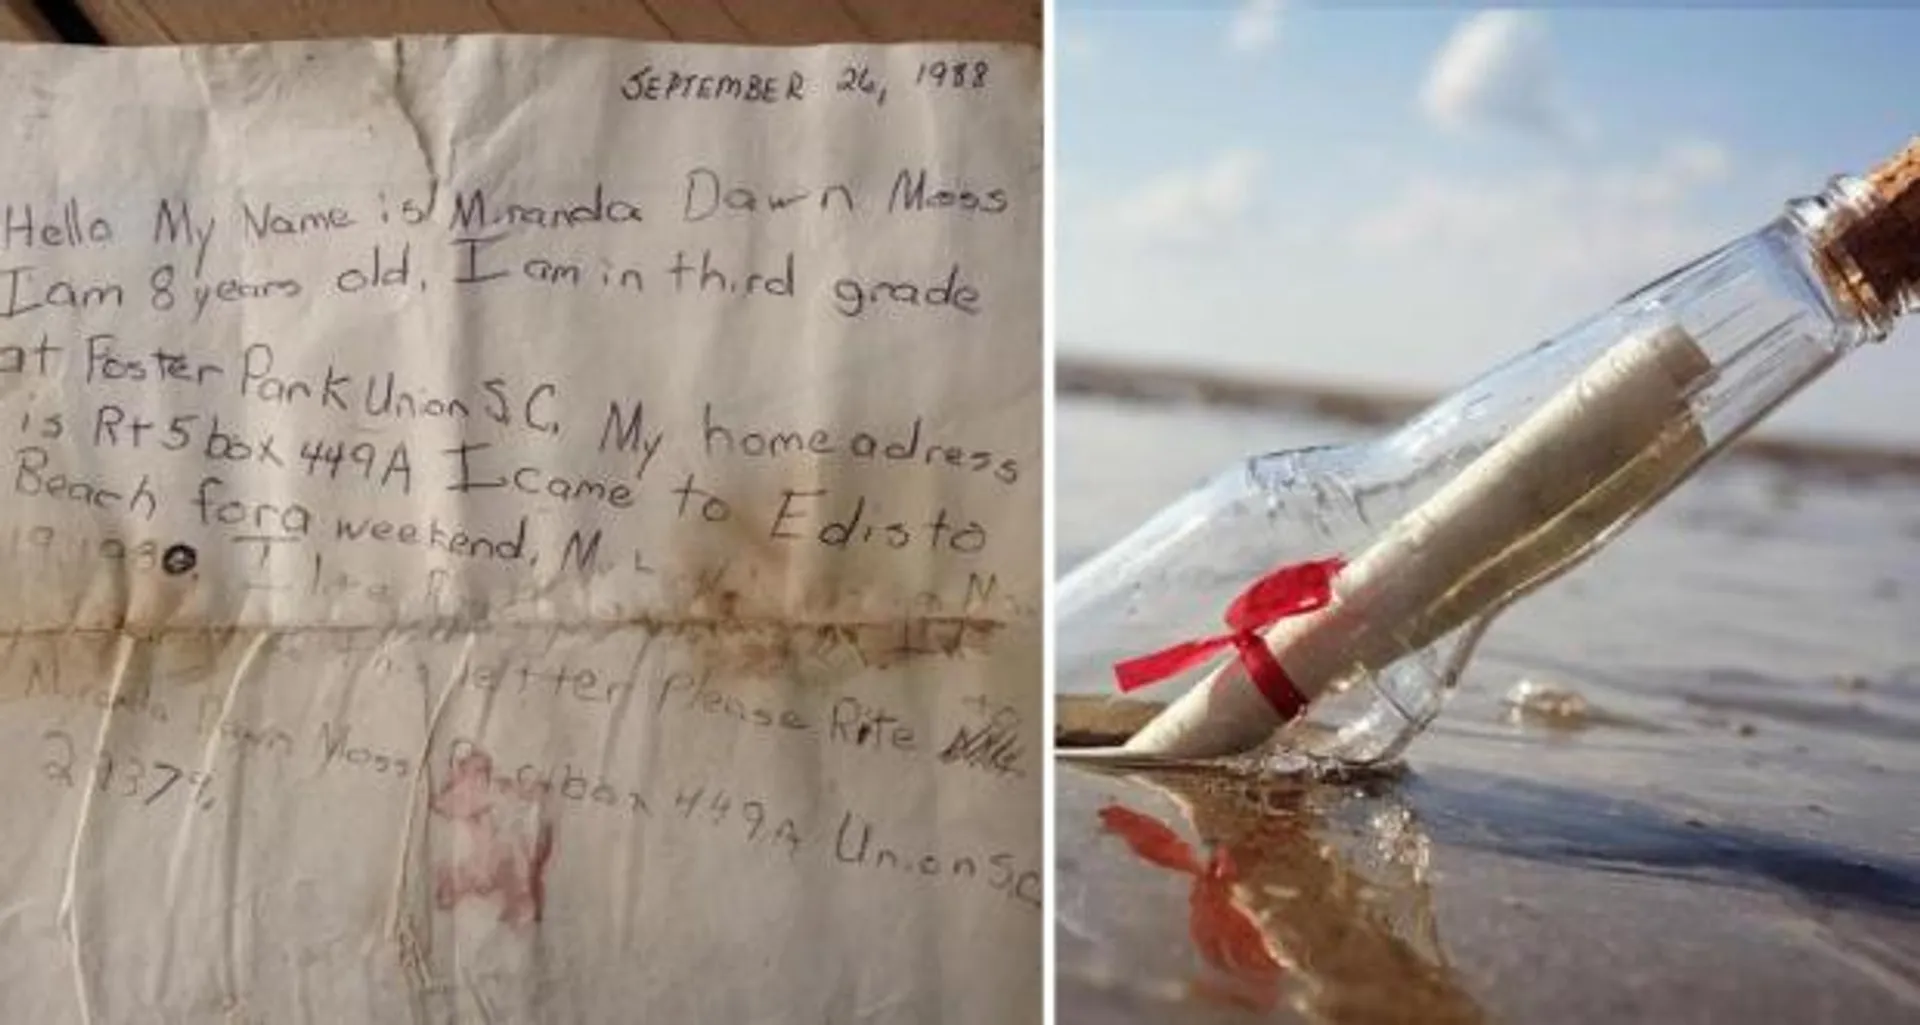 SEPTEMBER 26, 1988
Hello My Name is Miranda Dawn Moss
I am 8 years old. I am in third grade
at Foster Park Union S.C. My home adress
is Rt 5 box 449A I came to Edisto
Beach for a weekend. M
I
letter Please Rite to
Dawn Moss box 449A Union S.C